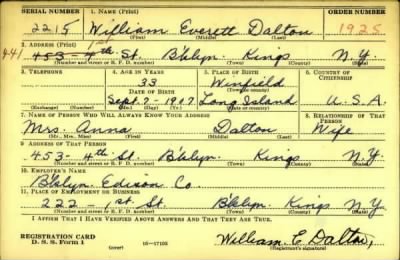 SERIAL NUMBER 1. NAME (Print) ORDER NUMBER
2215 William Everett Dalton 1925
(First) (Middle) (Last)
2. ADDRESS (Print)
441 453- 4th St. B'klyn. Kings N.Y.
(Number and street or R. F. D. number) (Town) (County) (State)
3. TELEPHONE 4. AGE IN YEARS 5. PLACE OF BIRTH 6. COUNTRY OF CITIZENSHIP
33 Winfield
DATE OF BIRTH (Town or county)
Sept. 7-1907 Long Island U.S.A.
(Exchange) (Number) (Mo.) (Day) (Yr.) (State or country)
7. NAME OF PERSON WHO WILL ALWAYS KNOW YOUR ADDRESS 8. RELATIONSHIP OF THAT PERSON
Mrs. Anna Dalton Wife
(Mr., Mrs., Miss) (First) (Middle) (Last)
9. ADDRESS OF THAT PERSON
453- 4th St. B'klyn. Kings N.Y.
(Number and street or R. F. D. number) (Town) (County) (State)
10. EMPLOYER'S NAME
B'klyn. Edison Co.
11. PLACE OF EMPLOYMENT OR BUSINESS
222 - 1st St. B'klyn. Kings N.Y.
(Number and street or R. F. D. number) (Town) (County) (State)
I AFFIRM THAT I HAVE VERIFIED ABOVE ANSWERS AND THAT THEY ARE TRUE.
REGISTRATION CARD
D. S. S. Form 1 (over) 16-17105 William E. Dalton,
(Registrant's signature)